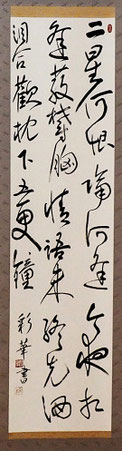 二星何恨隔河逢今夜相
逢散鬱胸情語未終先洒
泪合歡枕下五更鐘
彩華書